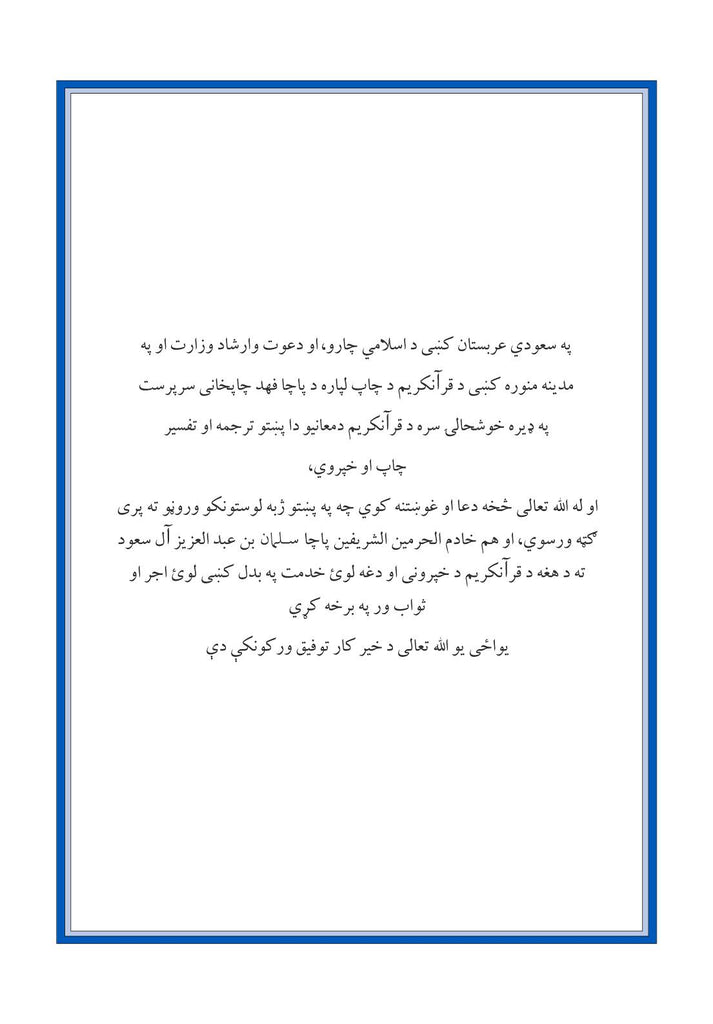 په سعودي عربستان کښی د اسلامي چارو، او دعوت وارشاد وزارت او په
مدینه منوره کښی د قرآنکریم د چاپ لپاره د پاچا فهد چاپخانی سرپرست
په ډیره خوشحالۍ سره د قرآنکریم دمعانیو دا پښتو ترجمه او تفسیر
چاپ او خپروي،
او له الله تعالی څخه دعا او غوښتنه کوي چه په پښتو ژبه لوستونکو وروڼو ته پری
ګټه ورسوي، او هم خادم الحرمین الشریفین پاچا سلمان بن عبد العزیز آل سعود
ته د هغه د قرآنکریم د خپرونی او دغه لوئ خدمت په بدل کښی لوئ اجر او
ثواب ور په برخه کړي
یواځی یو الله تعالی د خیر کار توفیق ورکونکې دې